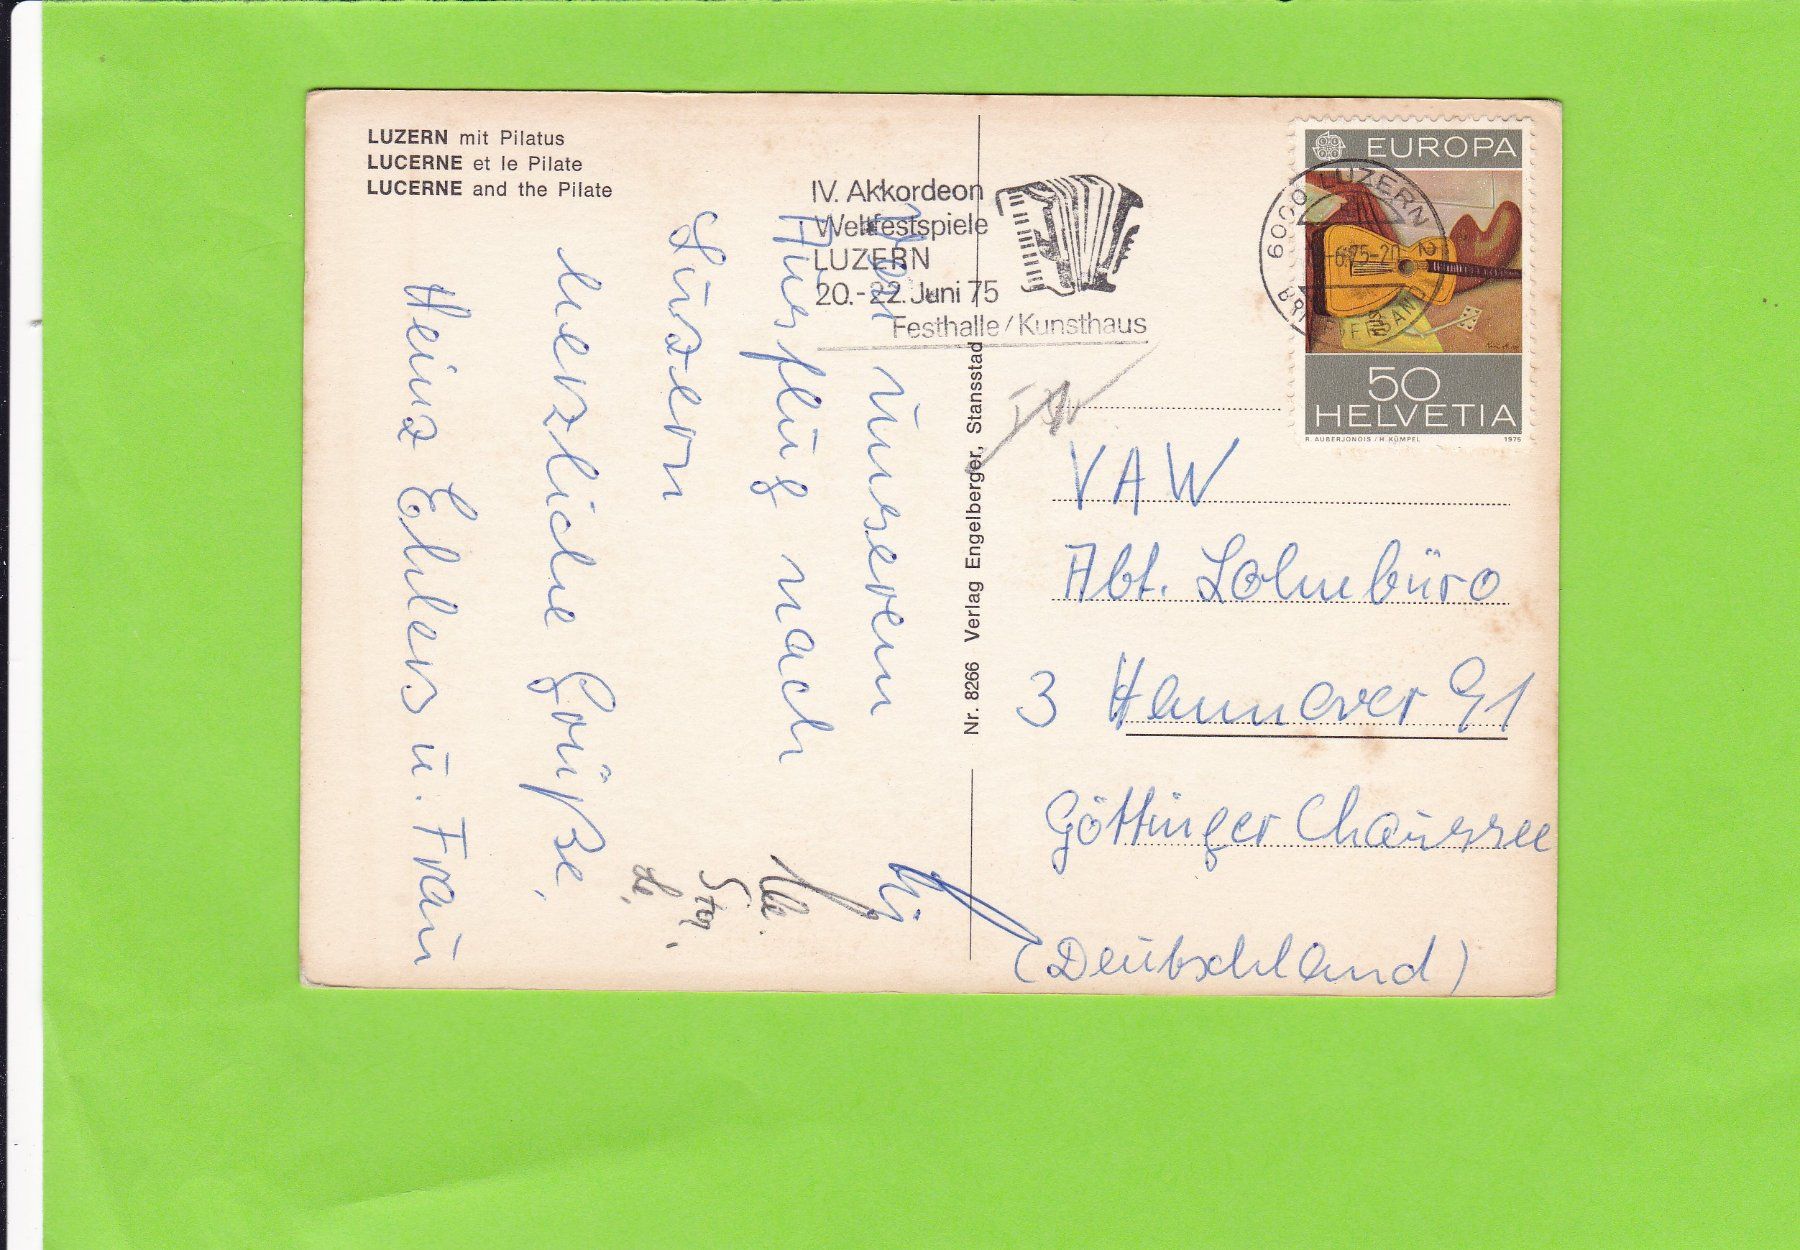 LUZERN mit Pilatus
LUCERNE et le Pilate
LUCERNE and the Pilate
IV. Akkordeon
Weltfestspiele
LUZERN
20.-22. Juni 75
Festhalle/Kunsthaus
EUROPA
50
HELVETIA
R. AUBERJONOIS / H. KÜMPEL 1975
6000 LUZERN 2
75-20
Von unserem
Ausflug nach
Luzern
herzliche Grüße,
Heinz Ehlers u. Frau
Nr. 8266 Verlag Engelberger, Stansstad
VAW
Abt. Lohnbüro
3 Hannover 91
Göttinger Chaussee
(Deutschland)